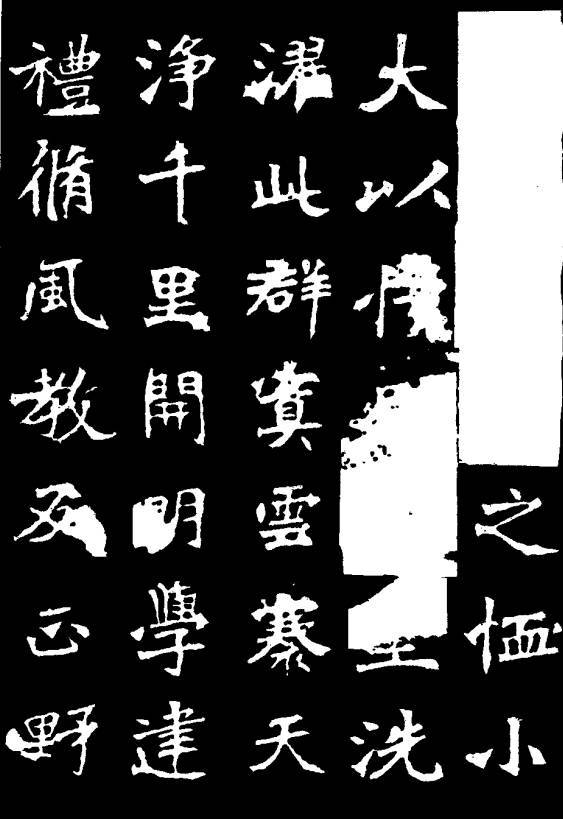 之恤小
大以情洗
濯此群冥雲褰天
淨千里開明學建
禮脩風教反正野